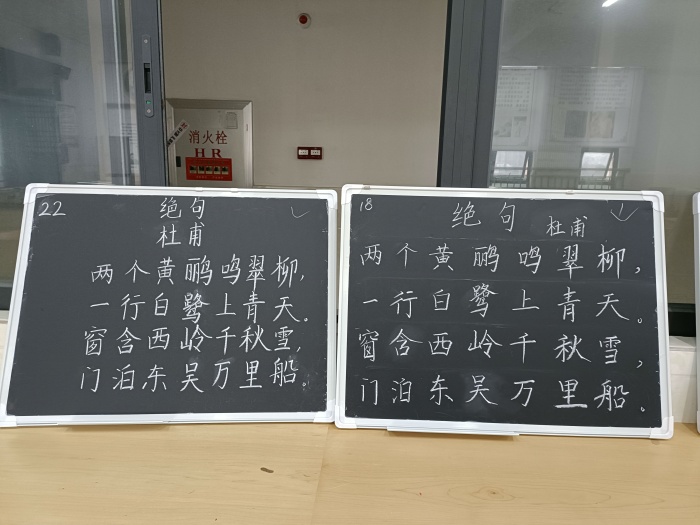 消火栓
HR
22
绝句
杜甫
两个黄鹂鸣翠柳,
一行白鹭上青天。
窗含西岭千秋雪,
门泊东吴万里船。
18
绝句 杜甫
两个黄鹂鸣翠柳,
一行白鹭上青天。
窗含西岭千秋雪,
门泊东吴万里船。